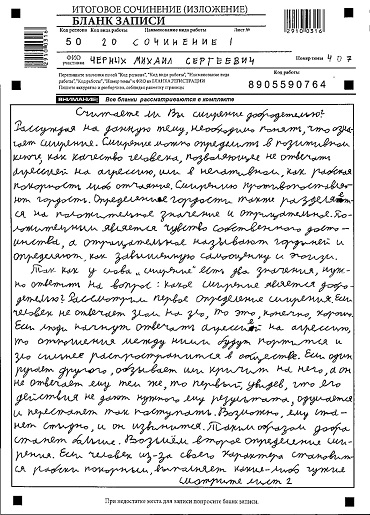 ИТОГОВОЕ СОЧИНЕНИЕ (ИЗЛОЖЕНИЕ)
БЛАНК ЗАПИСИ
2910290316
Код региона Код работы Наименование вида работы Лист №
50 20 СОЧИНЕНИЕ 1
ФИО участника ЧЕРНЫХ МИХАИЛ СЕРГЕЕВИЧ Номер темы 407
Перепишите значения полей "Код региона", "Код вида работы", "Наименование вида
работы", "Код работы", "Номер темы" и ФИО из БЛАНКА РЕГИСТРАЦИИ
Пишите аккуратно и разборчиво, соблюдая разметку страницы
Код работы
8905590764
ВНИМАНИЕ! Все бланки рассматриваются в комплекте
Считаете ли Вы смирение добродетелью?
Рассуждая на данную тему, необходимо понять, что озна-
чает смирение. Смирение можно определить в позитивном
ключе, как качество человека, позволяющее не отвечать
агрессией на агрессию, или в негативном, как рабская
покорность либо отчаяние. Смирению противопоставля-
ют гордость. Определение гордости также разделяет-
ся на положительное значение и отрицательное. По-
ложительным является чувство собственного досто-
инства, а отрицательное называют гордыней и
определяют, как завышенную самооценку и эгоизм.
Так как у слова "смирение" есть два значения, нуж-
но ответить на вопрос: какое смирение является добро-
детелью? Рассмотрим первое определение смирения. Если
человек не отвечает злом на зло, то это, конечно, хорошо.
Если люди начнут отвечать агрессией на агрессию,
то отношения между ними будут портится и
зло сильнее распространится в обществе. Если один
ругает другого, обзывает или кричит на него, а он
не отвечает ему тем же, то первый, увидев, что его
действия не дают нужного ему результата, одумается
и перестанет так поступать. Возможно, ему ста-
нет стыдно, и он извинится. Таким образом добра
станет больше. Возьмём второе определение сми-
рения. Если человек из-за своего характера становит-
ся рабски покорным, выполняет какие-либо чужие
Смотрите лист 2
При недостатке места для записи попросите бланк записи.